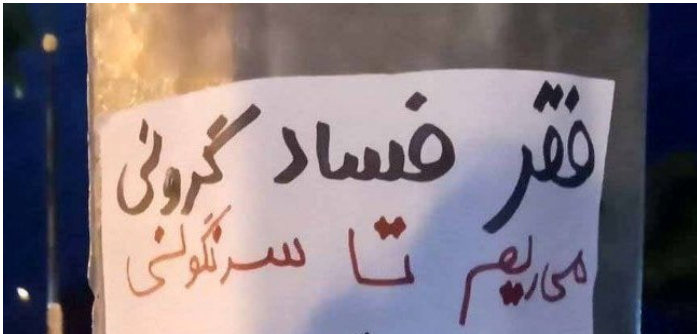 فقر فساد گرونی
می‌ریم تا سرنگونی